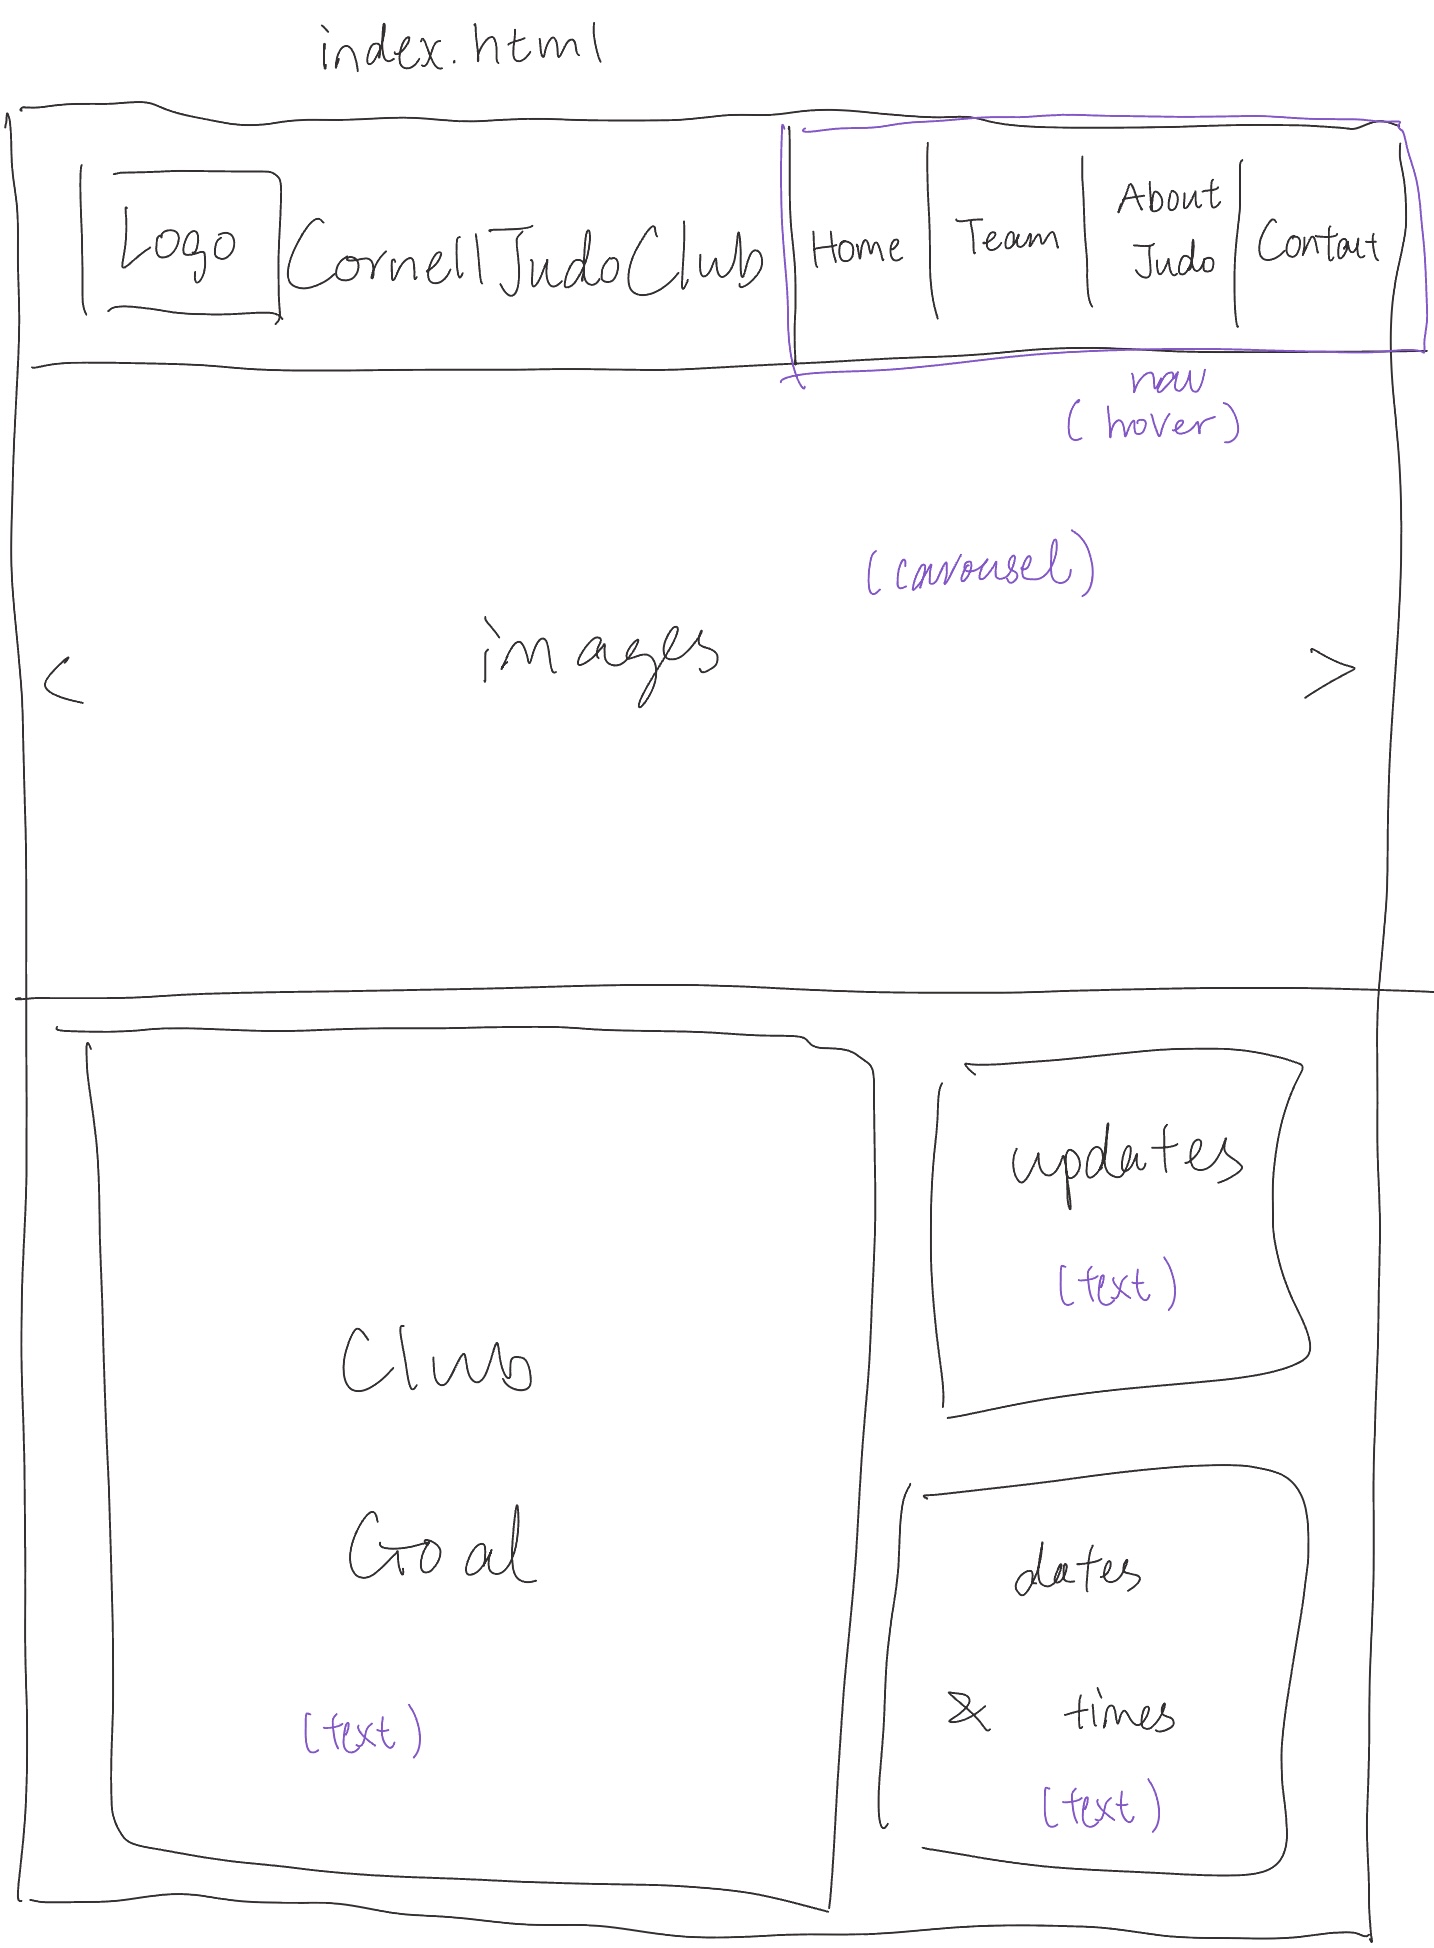 index.html
Logo
CornellJudoClub
Home
Team
About
Judo
Contact
nav
(hover)
(carousel)
images
<
>
Club
Goal
(text)
updates
(text)
dates
& times
(text)